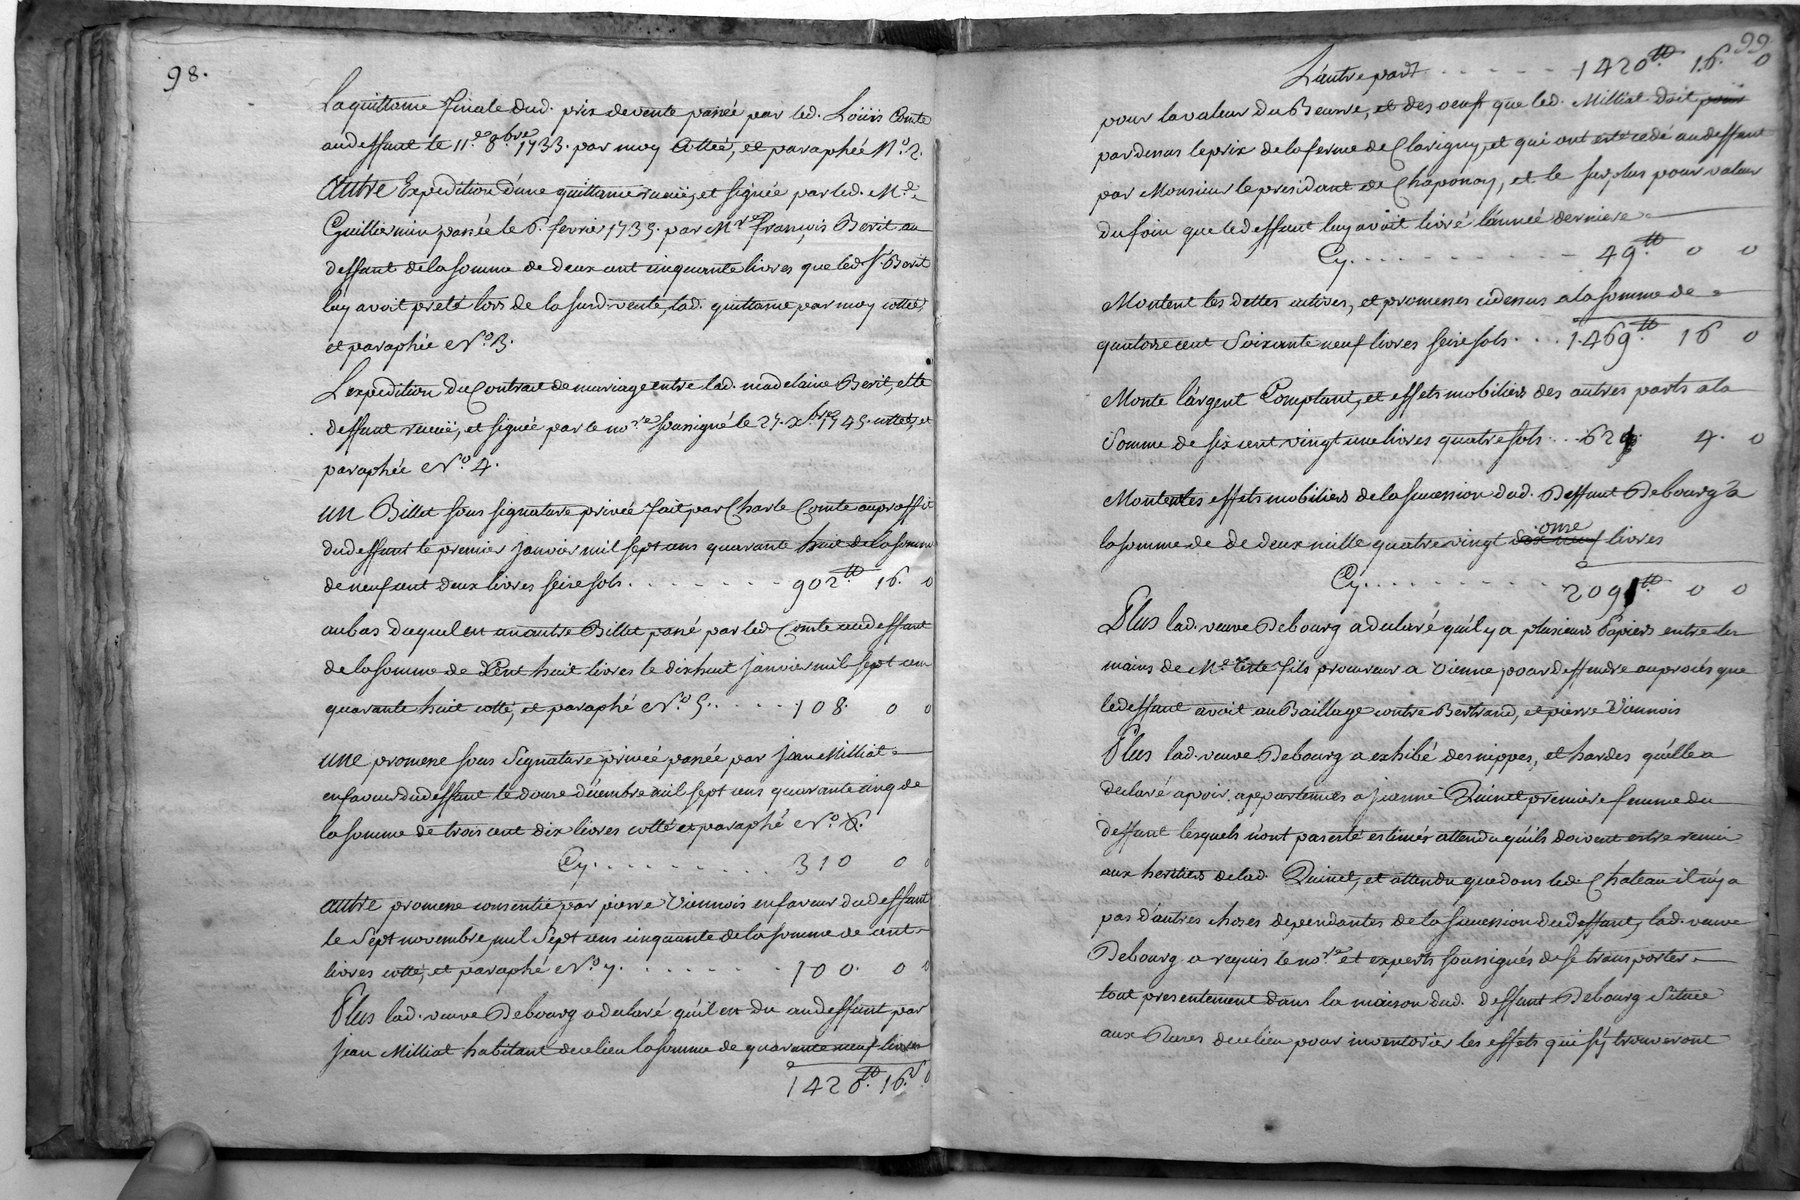 98.
La quittance finale dud. prix de vente passée par led. Loüis Comte
au deffunt le 11.e 8.bre 1733. par moy Cottée, et paraphée N.o 2.
autre Expedition d'une quittance receüe, et signée par led. M.e
Guilliermin passée le 6. fevrier 1735. par M.re françois Berit au
deffunt de la somme de deux cent cinquante livres que led. S.r Berit
luy avoit preté lors de la susd. vente, lad. quittance par moy cottée,
et paraphée N.o 3.
L'expedition du Contrat de mariage entre lad. madelaine Berit, et le
deffunt receüe, et signée par le no.re soussigné le 27. x.bre 1745. cottée, et
paraphée N.o 4.
un Billet sous signature privée fait par Charle Comte au proffit
dud deffunt le premier janvier mil sept cens quarante huit de la somme
de neuf cent deux livres seize sols . . . . . . . 902.tt 16. 0
au bas duquel est un autre Billet passé par led. Comte au deffunt
de la somme de Cent huit livres le dix huit janvier mil sept cen
quarante huit cotté, et paraphé N.o 5. . . . . . 108. 0 0
une promesse sous signature privée passée par jean Milliat
en faveur dud deffunt le douze décembre mil sept cens quarante cinq de
la somme de trois cent dix livres cotté et paraphé N.o 6.
Cy. . . . . . . . . 310 0 0
autre promesse consentie par pierre Viennois en faveur dud deffunt
le sept novembre mil sept cens cinquante de la somme de cent
livres cotté, et paraphé N.o 7. . . . . . . . 100. 0 0
Plus lad. veuve Debourg a declaré qu'il est du au deffunt par
jean Milliat habitant de ce lieu la somme de quarante neuf livres
1420.tt 16.s 0
99
L'autre part . . . . . 1420.tt 16. 0
pour la valeur du Beurre, et des oeufs que led. Milliat doit pour
par dessus le prix de la ferme de Clavigny, et qui ont esté cedé au deffunt
par Monsieur le president de Chaponay, et le surplus pour valeur
du foin que led deffunt luy avoit livré l'année derniere
Cy. . . . . . . . . 49.tt 0 0
Montent les dettes actives, et promesses cidessus a la somme de
quatorze cent soixante neuf livres seize sols. . . . 1469.tt 16 0
Monte l'argent Comptant, et effets mobiliers des autres parts a la
somme de six cent vingt une livres quatre sols . . . 621. 4. 0
Montent les effets mobiliers de la succession dud. Deffunt Debourg a
la somme de de deux mille quatre vingt dix neuf onze livres
Cy. . . . . . . . . 2091.tt 0 0
Plus lad. veuve Debourg a declaré qu'il y a plusieurs Papiers entre les
mains de M.e Teste fils procureur a Vienne pour deffendre au procés que
led deffunt avoit au Baillage contre Bertrand, et pierre Viennois
Plus lad. veuve Debourg a exhibé des nippes, et hardes qu'elle a
declaré avoir appartenus a jeanne Quinet premiere femme du
deffunt lesquels n'ont pas esté estimés attendu qu'ils doivent estre remis
aux heritiers de lad. Quinet, et attendu que dans led. Chateau il n'y a
pas d'autres choses dependantes de la succession dud deffunt, lad. veuve
Debourg a requis le no.re et experts soussignés de se transporter
tout presentement dans la maison dud. deffunt Debourg située
aux Rases de ce lieu pour inventorier les effets qui s'y trouveront